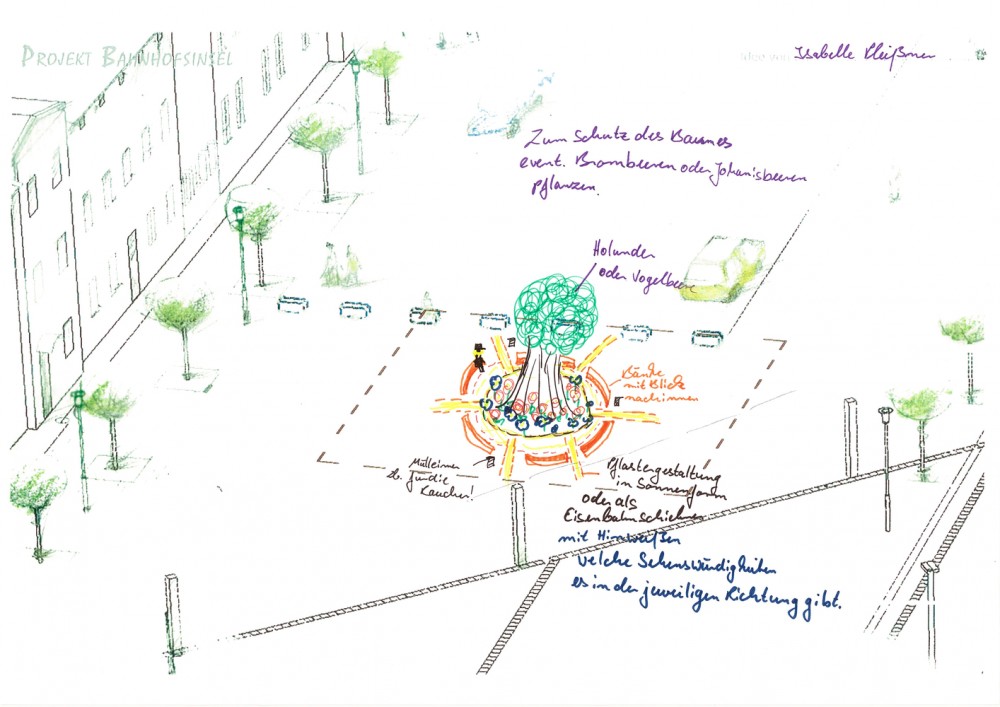 PROJEKT BAHNHOFSINSEL
Idee von Isabelle
Zum Schutz des Baumes
event. Brombeeren oder Johanisbeeren
pflanzen.
Holunder
oder Vogelbeere
Bänke
mit Blick
nach innen
Mülleimer
für die
Raucher!
Pflastergestaltung
in Sonnenform
oder als
Eisenbahnschienen
mit Hinweißen
welche Sehenswürdigkeiten
es in der jeweiligen Richtung gibt.